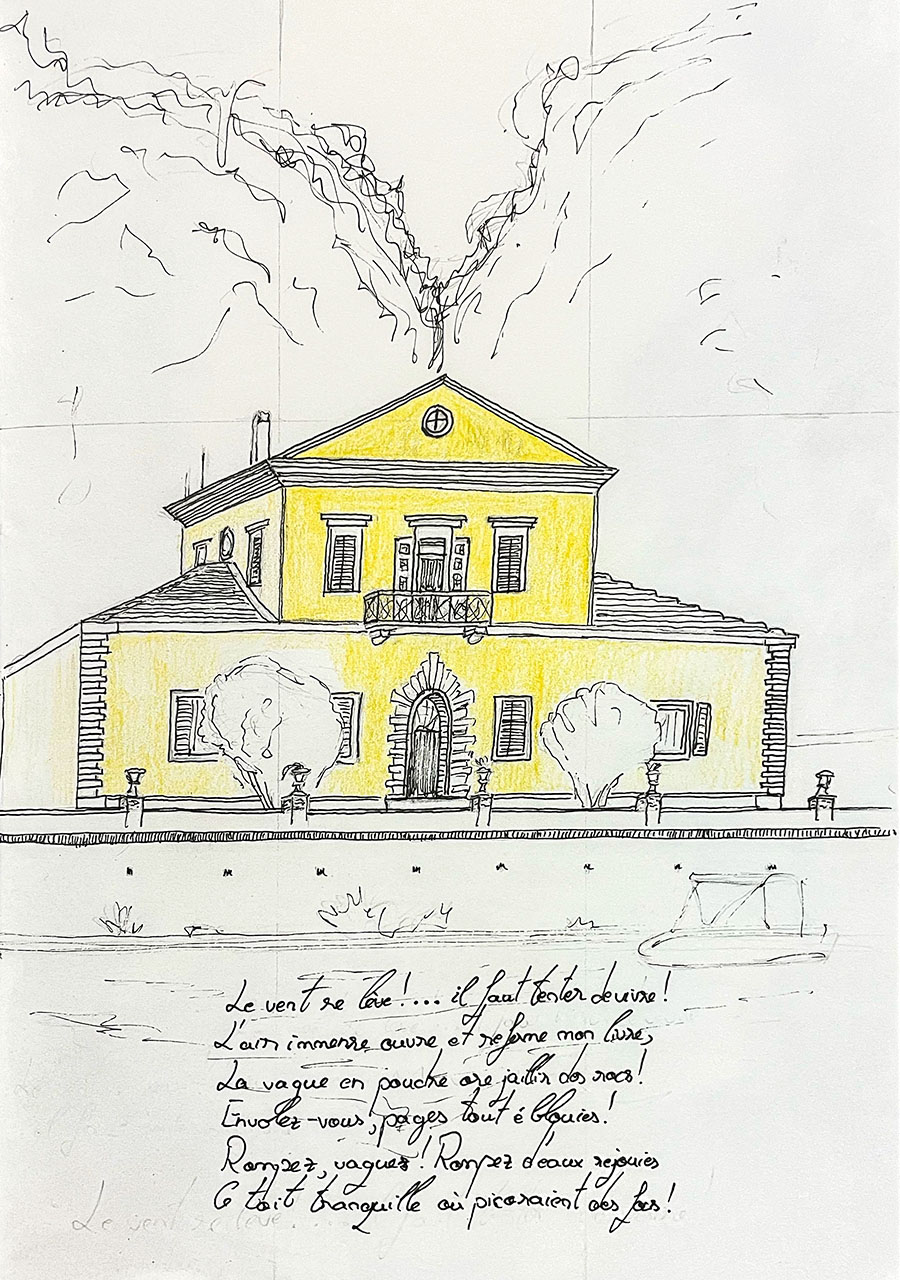 Le vent se lève!... il faut tenter de vivre!
L'air immense ouvre et referme mon livre,
La vague en poudre ose jaillir des rocs!
Envolez-vous, pages tout éblouies!
Rompez, vagues! Rompez d'eaux rejouies
Ce toit tranquille où picoraient des focs!
Le vent se lève....